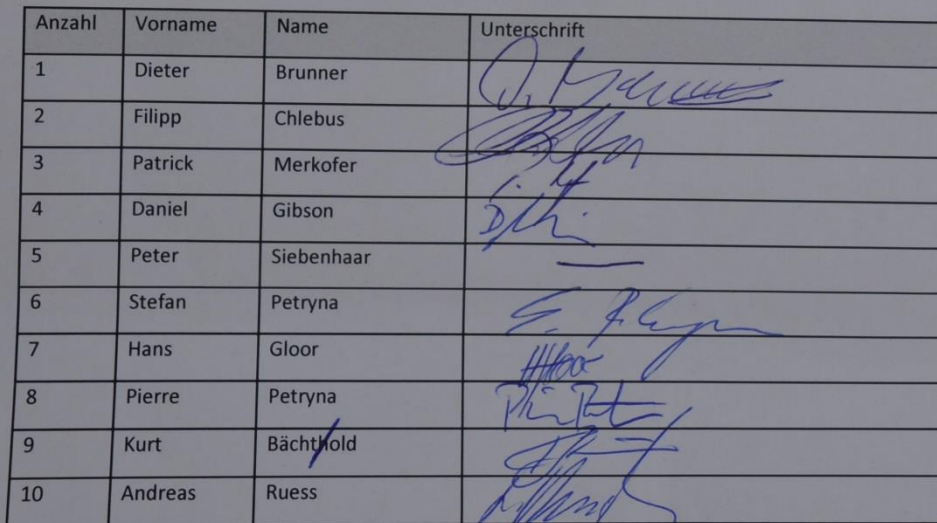 Anzahl Vorname Name Unterschrift
1 Dieter Brunner
2 Filipp Chlebus
3 Patrick Merkofer
4 Daniel Gibson
5 Peter Siebenhaar
6 Stefan Petryna
7 Hans Gloor
8 Pierre Petryna
9 Kurt Bächthold
10 Andreas Ruess